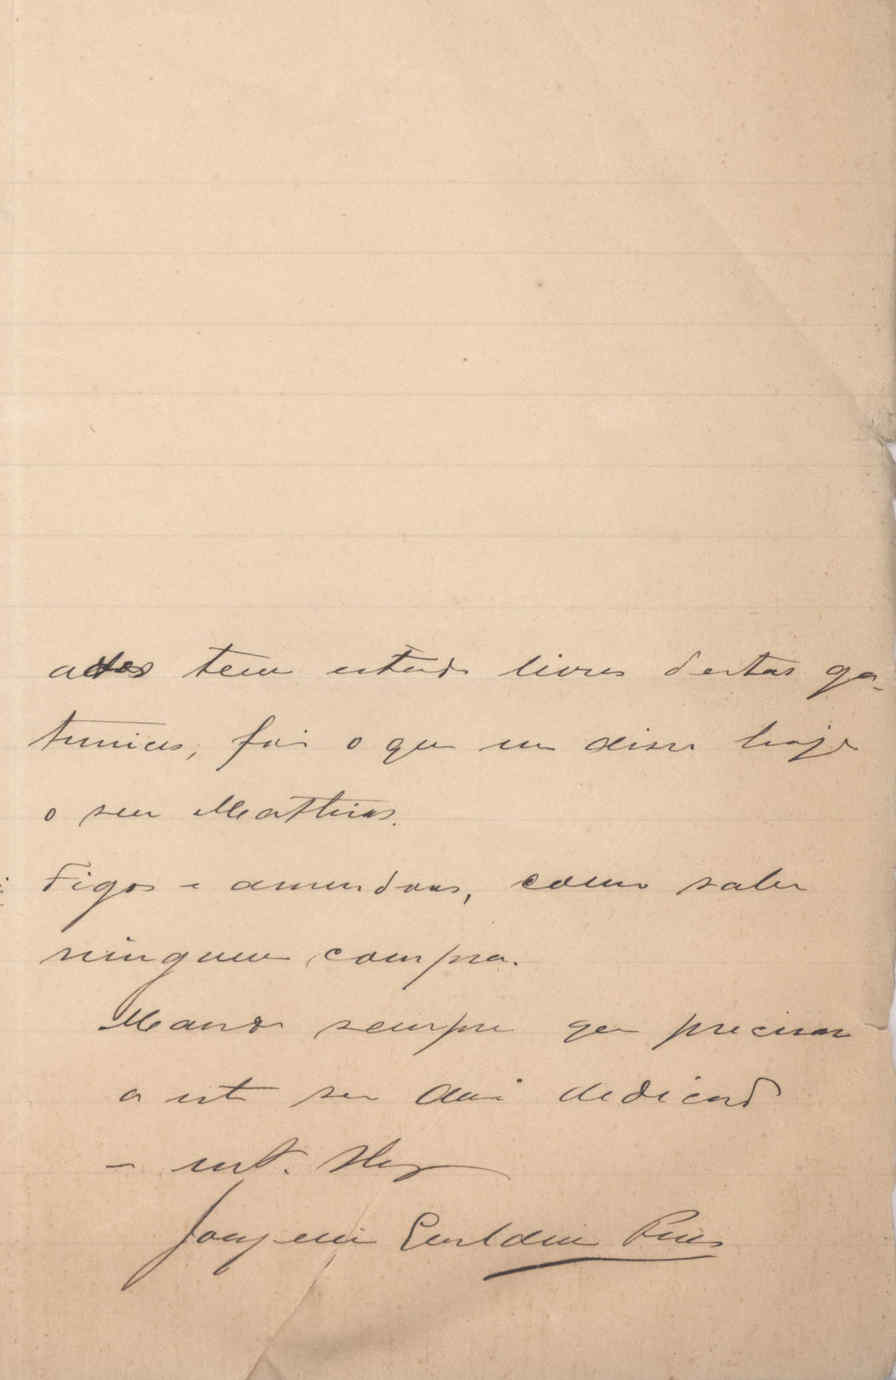 tem estado livres d'estas ga-
tunices, foi o que me disse hoje
o seu Mathias.
Figos e amendoas, como sabe
ninguem compra.
Mande sempre que precisar
a este seu ami dedicado
e mt.
Joaquim Gualdino Pires